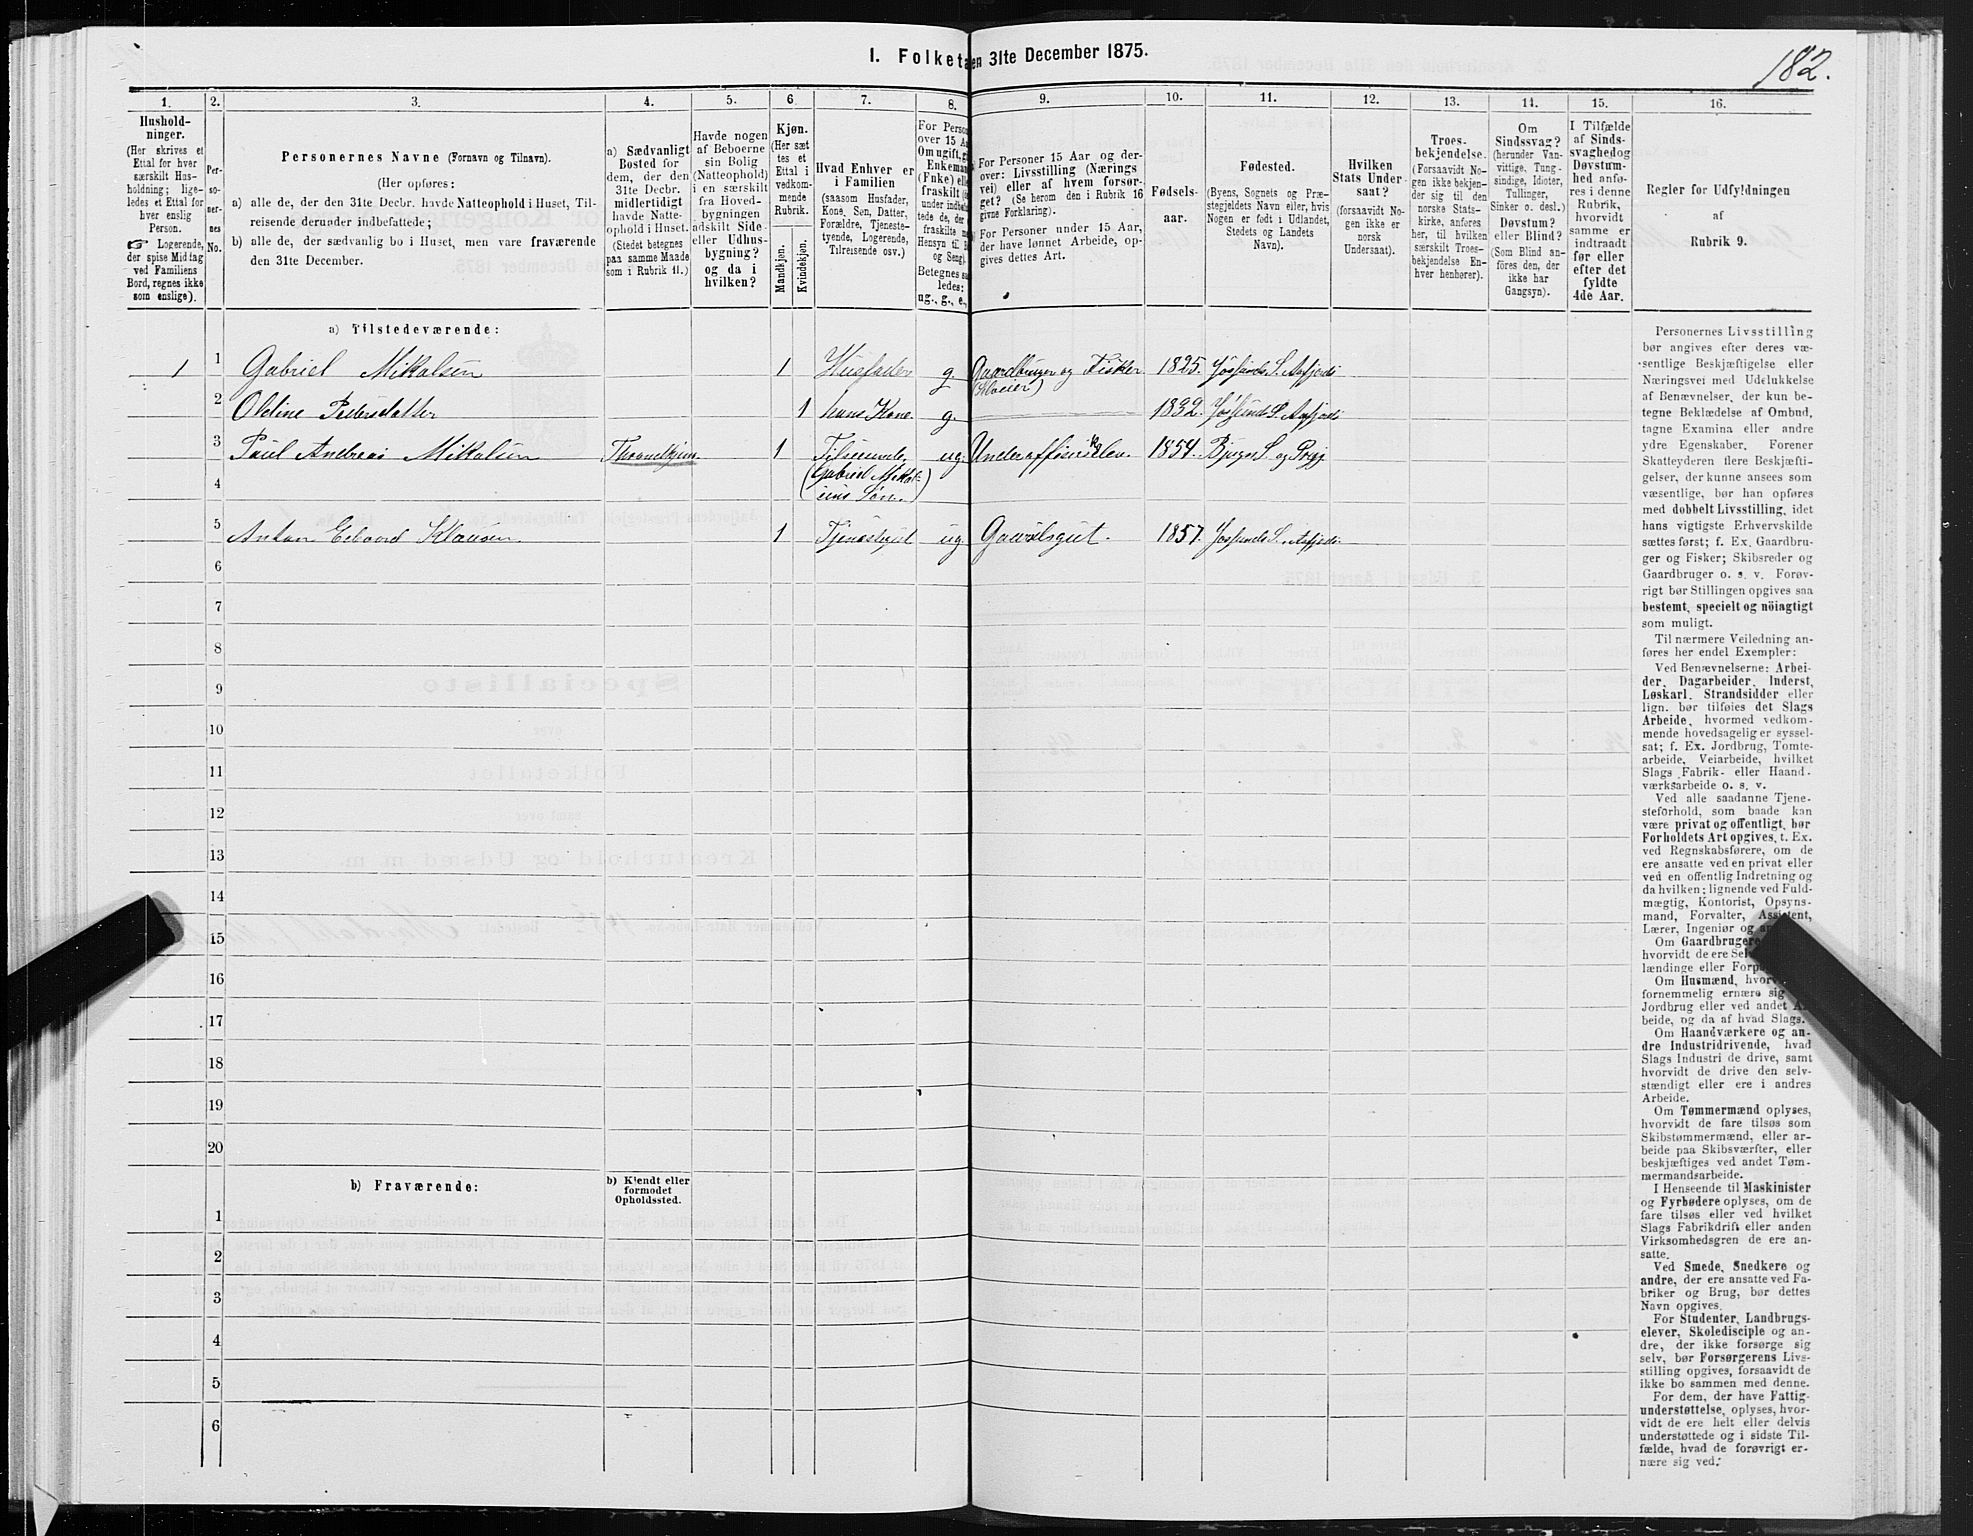 I. Folketa en 31te December 1875.
182.
1. 2. 3. 4. 5. 6. 7. 8. 9. 10. 11. 12. 13. 14. 15. 16.
Hushold-
ninger.
(Her skrives et
Ettal for hver
særskilt Hus-
holdning; lige-
ledes et Ettal for
hver enslig
Person.
Logerende,
der spise Middag
ved Familiens
Bord, regnes ikke
som enslige).
Per-
so-
ner-
nes
No.
Personernes Navne (Fornavn og Tilnavn).
(Her opføres:
a) alle de, der den 31te Decbr. havde Natteophold i Huset, Til-
reisende derunder indbefattede;
b) alle de, der sædvanlig bo i Huset, men vare fraværende
den 31te December.
a) Sædvanligt
Bosted for
dem, der den
31te Decbr.
midlertidigt
havde Natte-
ophold i Huset.
(Stedet betegnes
paa samme Maade
som i Rubrik 11.)
Havde nogen
af Beboerne
sin Bolig
(Natteophold)
i en særskilt
fra Hoved-
bygningen
adskilt Side-
eller Udhus-
bygning?
og da i
hvilken?
Kjøn.
(Her sæt
tes et
Ettal i
vedkom-
mende
Rubrik.
Mandkjøn.
Kvindekjøn.
Hvad Enhver er
i Familien
(saasom Husfader,
Kone, Søn, Datter,
Forældre, Tjeneste-
tyende, Logerende,
Tilreisende osv.)
For Person
over 15 A
Om ugift, g
Enkeman
(Fnke) elle
fraskilt
under indb
tede de, der
fraskilte
Hensyn til B
og Seng).
Betegnes sa
ledes:
ug., g., e.,
For Personer 15 Aar og der-
over: Livsstilling (Nærings
vei) eller af hvem forsør-
get? (Se herom den i Rubrik 16
givne Forklaring).
For Personer under 15 Aar,
der have lønnet Arbeide, op-
gives dettes Art.
Fødsels-
aar.
Fødested.
(Byens, Sognets og Præ-
stegjeldets Navn eller, hvis
Nogen er født i Udlandet,
Stedets og Landets
Navn).
Hvilken
Stats Under
saat?
(forsaavidt No-
gen ikke er
norsk
Undersaat).
Troes-
bekjendelse.
(Forsaavidt No-
gen ikke bekjen-
der sig til den
norske Stats-
kirke, anføres
her, til hvilken
særskilt Troes-
bekjendelse En-
hver henhører).
Om
Sindssvag?
(herunder Van-
vittige, Tung-
sindige, Idioter,
Tullinger,
Sinker o. desl.)
Døvstum?
eller Blind?
(Som Blind an-
føres den, der
ikke har
Gangsyn).
I Tilfælde
af Sinds-
svaghed og
Døvstum-
hed anfø-
res i denne
Rubrik,
hvorvidt
samme er
indtraadt
før eller
efter det
fyldte
4de Aar.
Regler for Udfyldningen
af
Rubrik 9.
a) Tilstedeværende:
1 1 Gabriel Mikalsen 1 Husfader g. Gaardbruger og Fisker 1825. Jøssunds S. Aafjords
2 Oldine Pedersdatter 1 hans Kone g. 1832. Jøssunds S. Aafjords
3 Paul Andreas Mikalsen Throndhjem. 1 Tilreisende ug. Underofficers Elev. 1854. Bjugn S. og Prgj
4 (Gabriel Mikal-
sens Søn.)
5 Anton Edvard Klausen. 1 Tjenestegut ug Gaardsgut. 1857. Jøssunds S. Aafjords
6
7
8
9
10
11
12
13
14
15
16
17
18
19
20
b) Fraværende:
b) Kjendt eller
formodet
Opholdssted.
1
2
3
4
5
6
Personernes Livsstilling
bør angives efter deres væ-
sentlige Beskjæftigelse eller
Næringsvei med Udelukkelse
af Benævnelser, der kun be-
tegne Beklædelse af Ombud,
tagne Examina eller andre
ydre Egenskaber. Forener
Skatteyderen flere Beskjæfti-
gelser, der kunne ansees som
væsentlige, bør han opføres
med dobbelt Livsstilling, idet
hans vigtigste Erhvervskilde
sættes først; f. Ex. Gaardbru-
ger og Fisker; Skibsreder og
Gaardbruger o. s. v. Forøv-
rigt bør Stillingen opgives saa
bestemt, specielt og nöiagtigt
som muligt.
Til nærmere Veiledning an-
føres her endel Exempler:
Ved Benævnelserne: Arbei-
der, Dagarbeider, Inderst,
Løskarl, Strandsidder eller
lign. bør tilføies det Slags
Arbeide, hvormed vedkom-
mende hovedsagelig er syssel-
sat; f. Ex. Jordbrug, Tomte-
arbeide, Veiarbeide, hvilket
Slags Fabrik- eller Haand-
værksarbeide o. s. v.
Ved alle saadanne Tjene-
steforhold, som baade kan
være privat og offentligt, bør
Forholdets Art opgives, t. Ex.
ved Regnskabsførere, om de
ere ansatte ved en privat eller
ved en offentlig Indretning og
da hvilken; lignende ved Fuld-
mægtig, Kontorist, Opsyns-
mand, Forvalter, Assistent,
Lærer, Ingeniør og
Om Gaardbrugere
hvorvidt de ere Sel
lændinge eller Forp
Om Husmænd,
fornemmelig ernære sig
Jordbrug eller ved andet
beide, og da af hvad Slags.
Om Haandværkere og an-
dre Industridrivende, hvad
Slags Industri de drive, samt
hvorvidt de drive den selv-
stændigt eller ere i andres
Arbeide.
Om Tømmermænd oplyses,
hvorvidt de fare tilsøs som
Skibstømmermænd, eller ar-
beide paa Skibsværfter, eller
beskjæftiges ved andet Tøm-
mermandsarbeide.
I Henseende til Maskinister
og Fyrbødere oplyses, om de
fare tilsøs eller ved hvilket
Slags Fabrikdrift eller anden
Virksomhedsgren de ere an-
satte.
Ved Smede, Snedkere og
andre, der ere ansatte ved Fa-
briker og Brug, bør dettes
Navn opgives.
For Studenter, Landbrugs-
elever, Skoledisciple og an-
dre, der ikke forsørge sig
selv, bør Forsørgerens Livs-
stilling opgives, forsaavidt de
ikke bo sammen med denne.
For dem, der have Fattig-
understøttelse, oplyses, hvor-
vidt de ere helt eller delvis
understøttede og i sidste Til-
fælde, hvad de forøvrigt er-
nære sig ved.